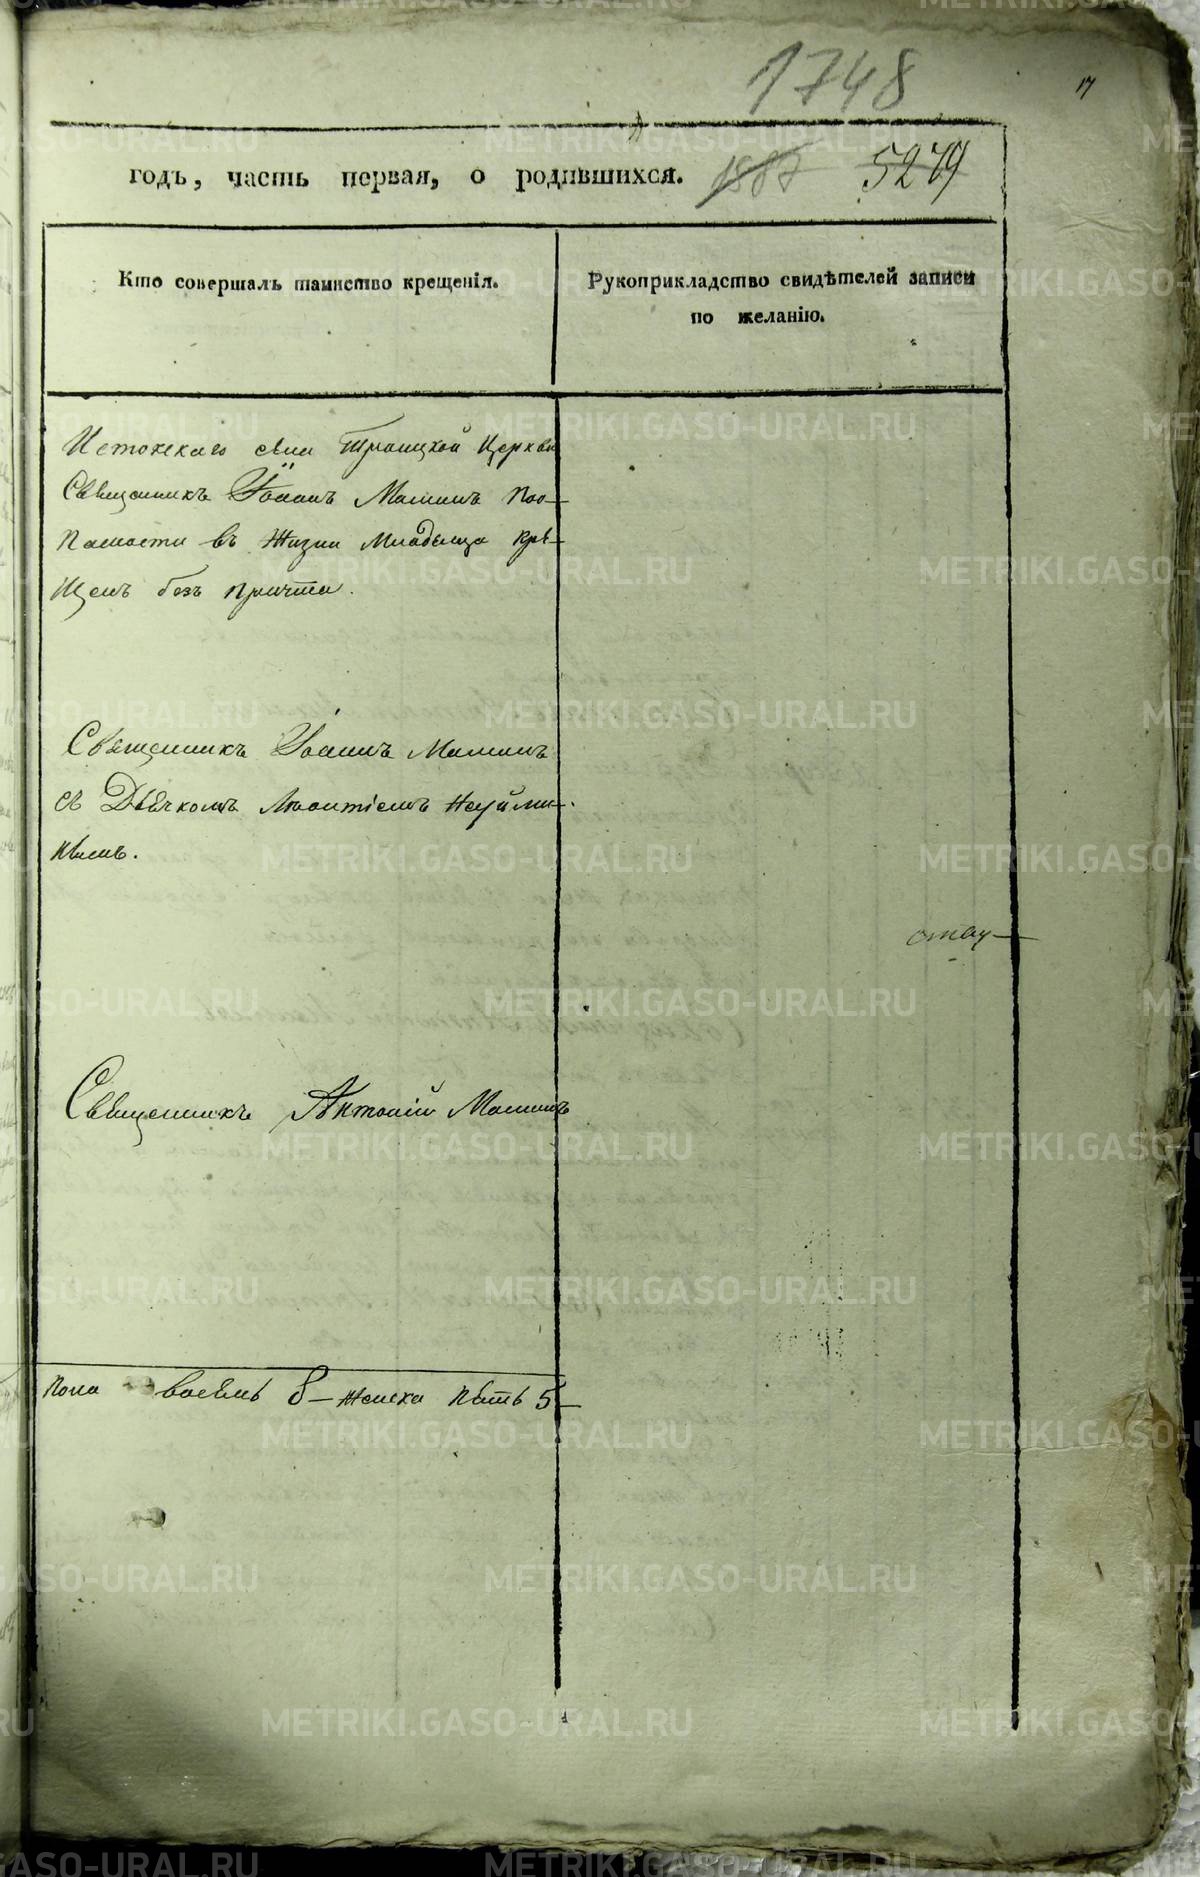 1748
17
годъ, часть первая, о родившихся. 1887 5279
Кто совершалъ таинство крещенія.
Рукоприкладство свидѣтелей записи
по желанію.
Истокскаго села Троицкой Церкви
Священникъ Іоаннъ Маминъ По о-
пасности въ Жизни Младенца кре-
щенъ безъ причта.
Священникъ Іоаннъ Маминъ
съ Дьячкомъ Леонтіемъ Неуйми-
нымъ.
Священникъ Антоній Маминъ
Пола восемь 8 – женска пять 5 –
METRIKI.GASO-URAL.RU